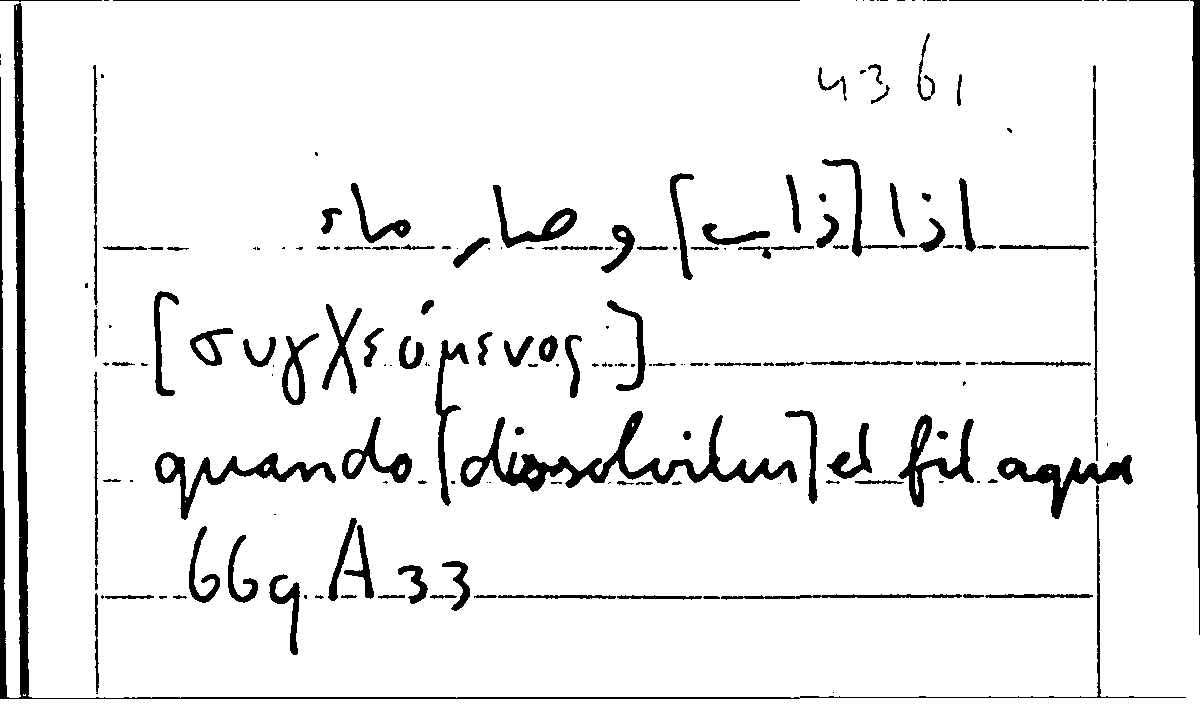 4361
اذا [ذاب] وصار ماء
[συγχεόμενος]
quando [dissolvitur] et fit aqua
669 A 33